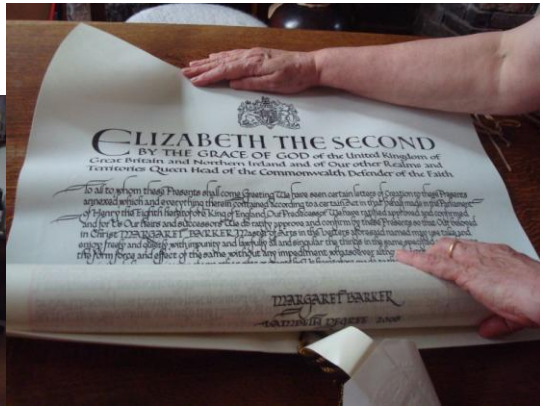 ELIZABETH THE SECOND
BY THE GRACE OF GOD of the United Kingdom of
Great Britain and Northern Ireland and of Our other Realms and
Territories Queen Head of the Commonwealth Defender of the Faith
To all to whom these Presents shall come Greeting We have seen certain letters of Creation to these Presents
annexed which and everything therein contained according to a certain Act in that behalf made in the Parliament
of Henry the Eighth heretofore King of England Our Predecessor We have ratified approved and confirmed
and for Us Our heirs and successors We do ratify approve and confirm by these Presents so that Our beloved
in Christ MARGARET BARKER Master of Arts in the letters aforesaid named may use take and
enjoy freely and quietly with impunity and lawfully all and singular the things in the same specified
the form force and effect of the same without any impediment whatsoever
MARGARET BARKER
LAMBETH DEGREE 2008